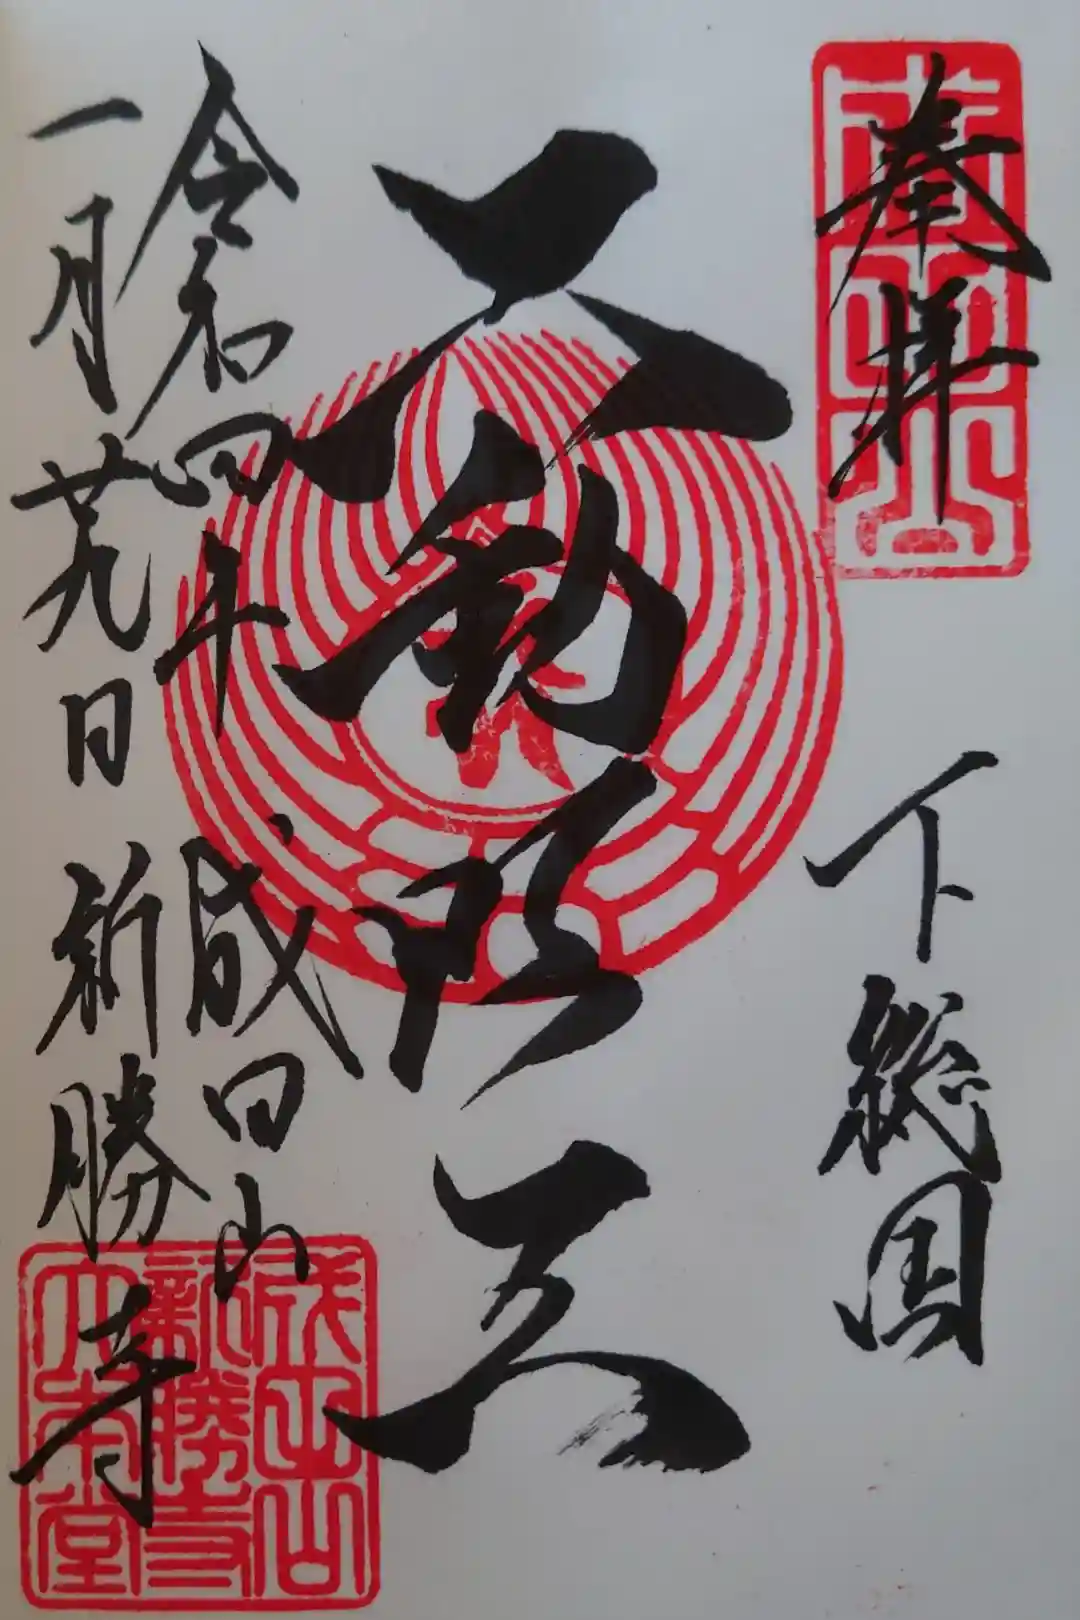 奉拝
成田山
下総国
不動明王
令和四年 成田山
一月廿九日 新勝寺
成田山
新勝寺
大本堂